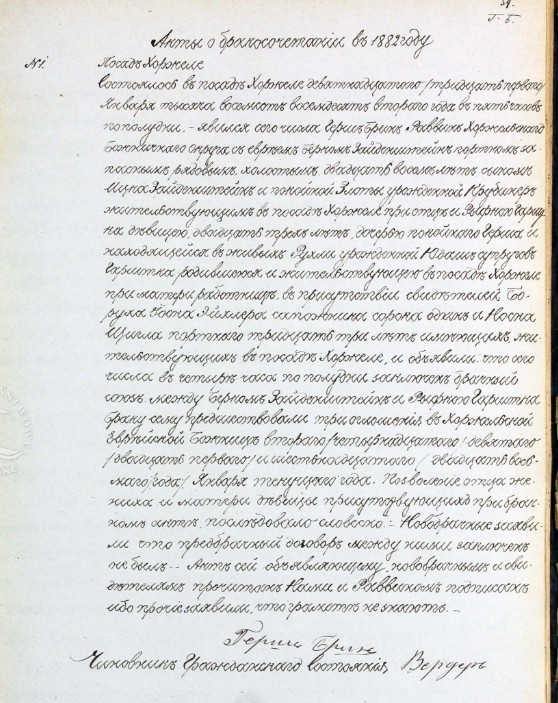 Акты о бракосочетаніи въ 1882 году
№ 1.
Посадъ Хоржеле
Состоялось въ посадѣ Хоржеле девятнадцатаго /тридцать перваго/
Января тысяча восемьсотъ восемьдесятъ втораго года въ пять часовъ
пополудни, – явился сего числа Герш Бринъ Раввинъ Хоржельскаго
Божничнаго округа съ евреемъ Беркомъ Зайденштейнъ портномъ за-
паснымъ рядовымъ, холостымъ, двадцати восьми лѣтъ, сыномъ
Зайденштейнъ и покойной Златы урожденной
жительствующимъ въ посадѣ Хоржеле при отцѣ и Рыфкою Сарит-
на дѣвицею, двадцати трехъ лѣтъ, дочерью покойнаго Герша и
находящейся въ живыхъ Рухли урожденной супруговъ
Саритна родившеюся и жительствующею въ посадѣ Хоржеле
при матери работницею, въ присутствіи свидѣтелей Бо-
руха сапожника сорока одинъ и Носка
Щигла портнаго тридцать три лѣтъ имѣющихъ, жи-
тельствующихъ въ посадѣ Хоржеле, и объявили: что сего
числа въ четыре часа по полудни заключенъ брачный
союзъ между Беркомъ Зайденштейнъ и Рыфкою Саритна
браку сему предшествовали три оглашенія въ Хоржельской
Еврейской Божницѣ втораго /четырнадцатаго/ девятаго
/двадцать перваго/ и шестнадцатаго / двадцать вось-
маго /года/ Января текущаго года. Позволеніе отца же-
ниха и матери дѣвицы присутствующихъ при брач-
номъ актѣ послѣдовало словесно. – Новобрачные заяви-
ли что предбрачный договоръ между ними заключенъ
не былъ. – Актъ сей объявляющему, новобрачнымъ и сви-
дѣтелямъ прочитанъ Нами и Раввиномъ подписанъ
ибо прочіе заявили, что грамотѣ не знаютъ. –
Герш Бринъ
Чиновникъ Гражданскаго Состоянія Вердеръ